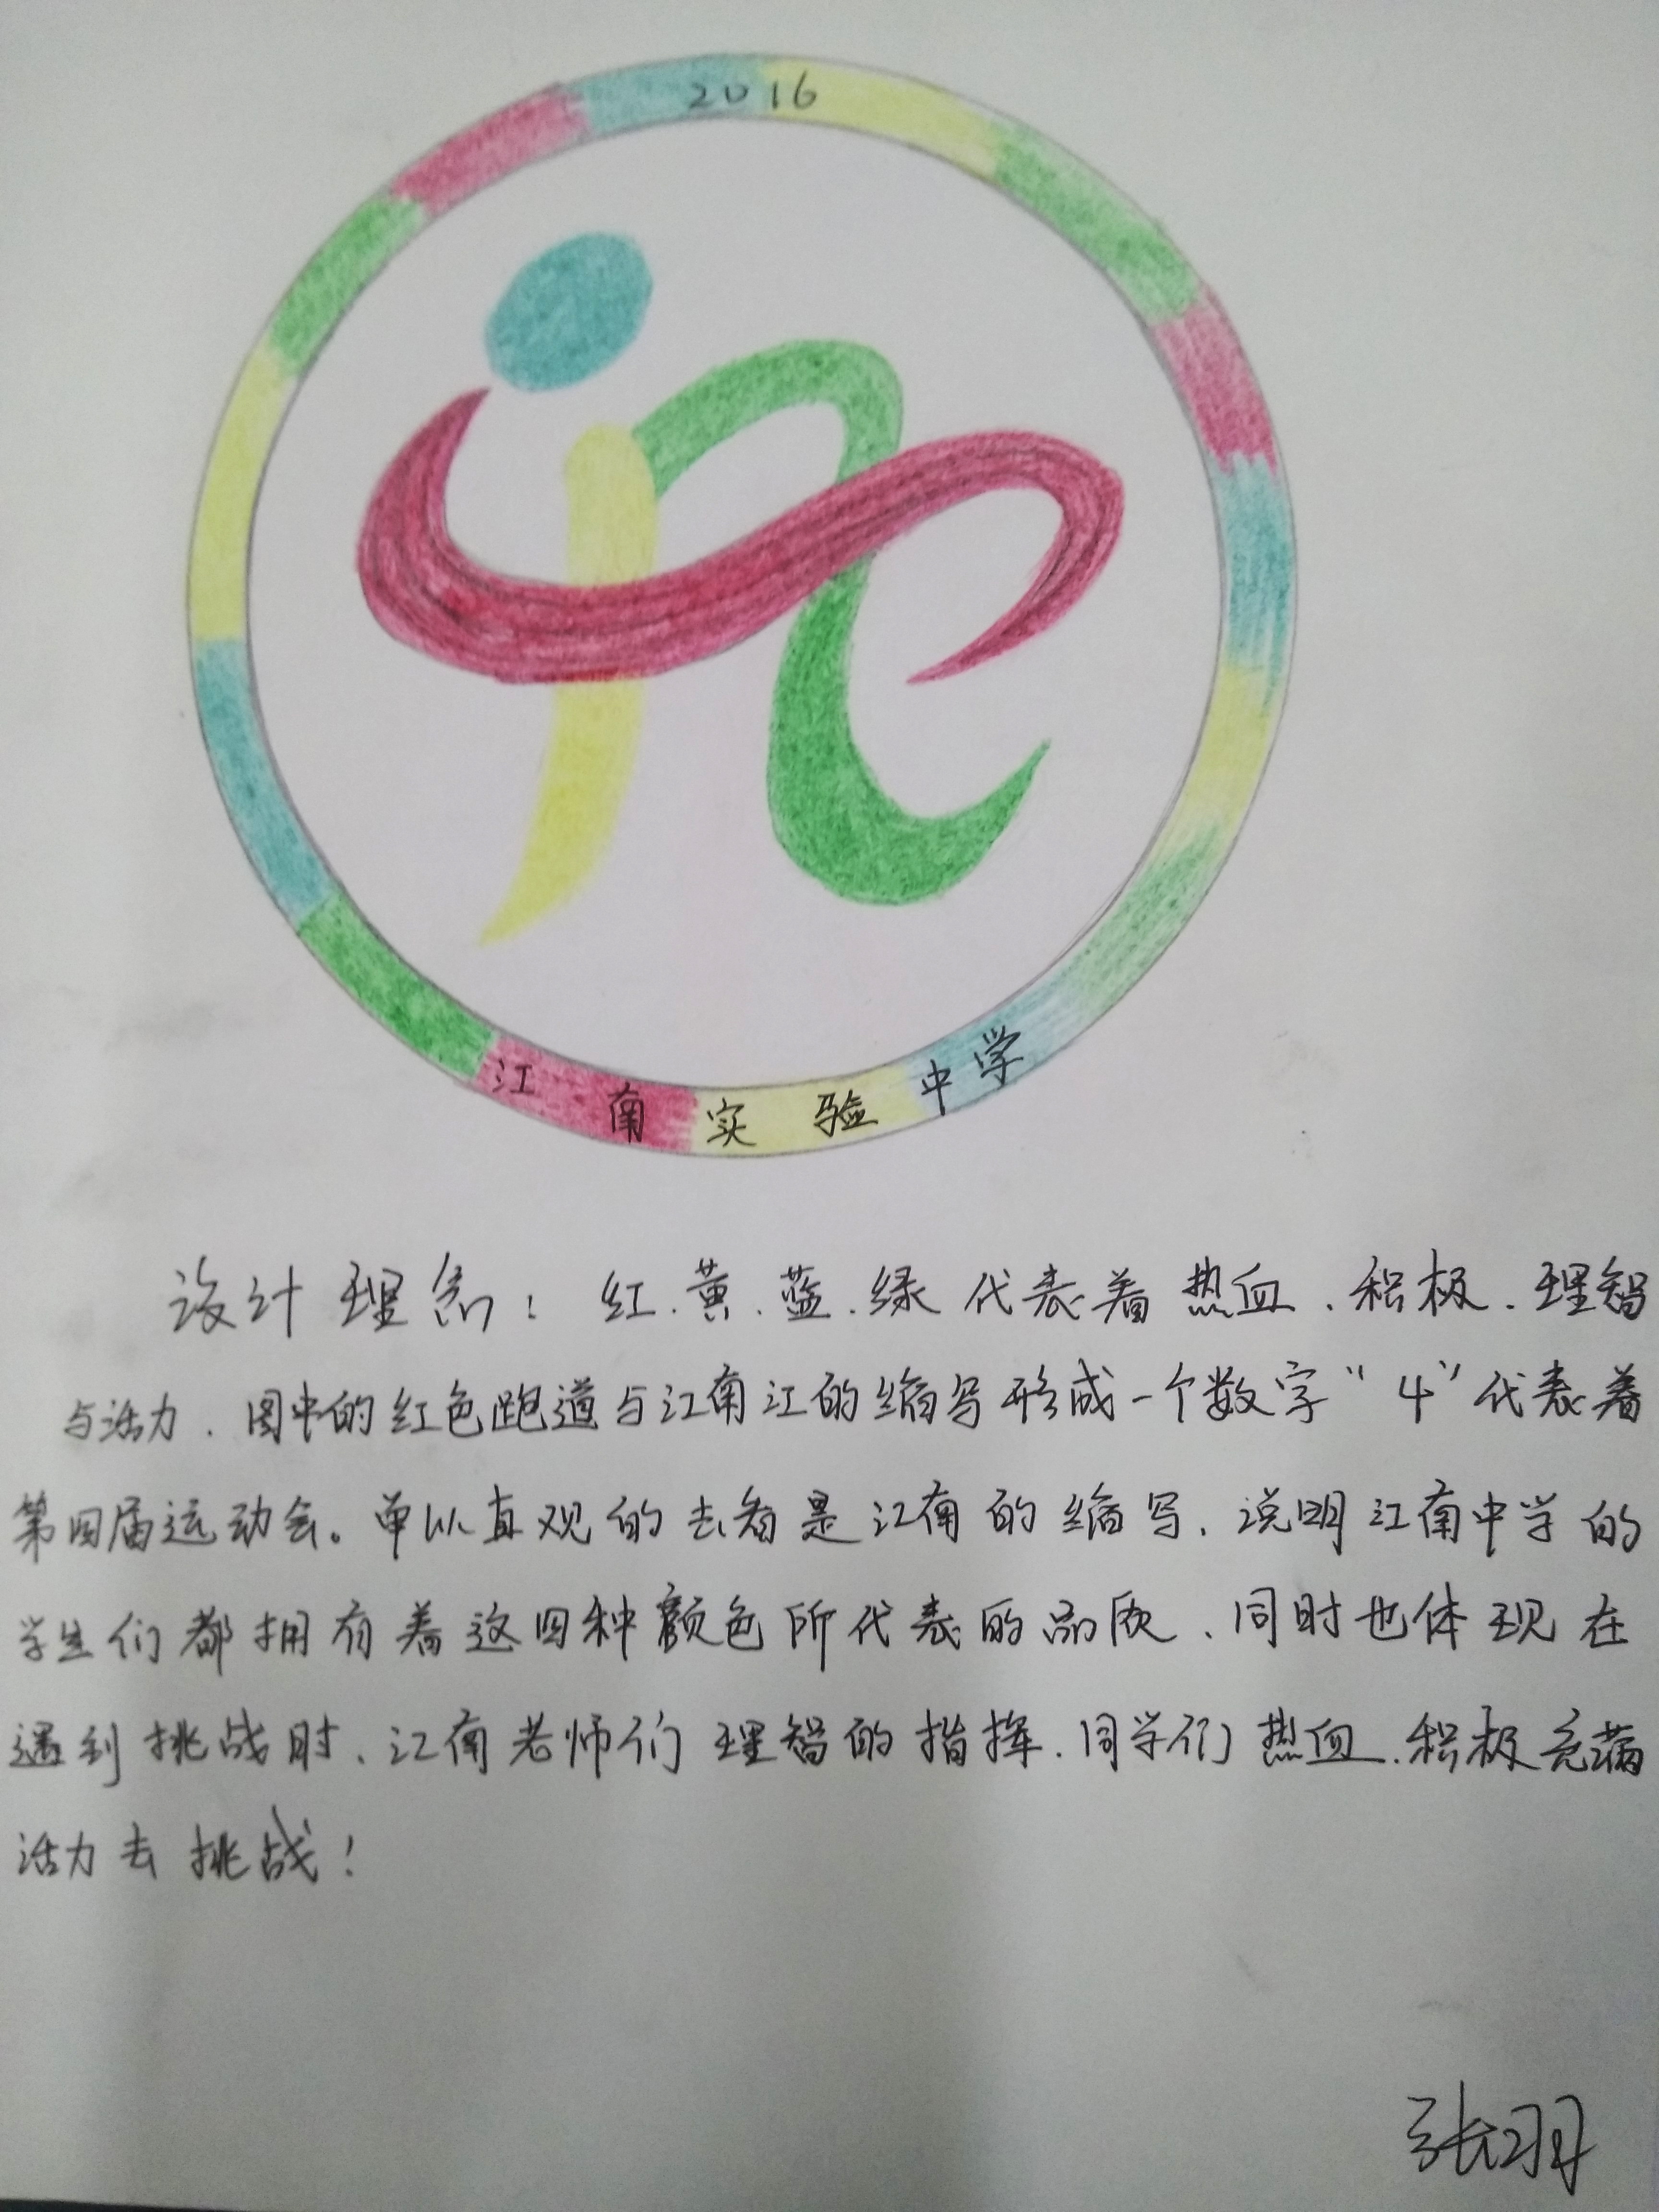 2016
江南实验中学
设计理念：红、黄、蓝、绿代表着热血、积极、理智
与活力、图中的红色跑道与江南江的缩写形成一个数字“4”代表着
第四届运动会。单从直观的去看是江南的缩写、说明江南中学的
学生们都拥有着这四种颜色所代表的品质、同时也体现在
遇到挑战时、江南老师们理智的指挥、同学们热血、积极充满
活力去挑战！
张羽